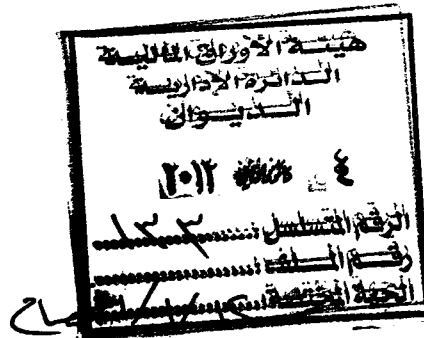 هيئة الأوراق المالية
الدائرة الإدارية
الديوان
٤ ٢٠١٢
الرقم المتسلسل ١٣٣
رقم الملف
الجهة المختصة